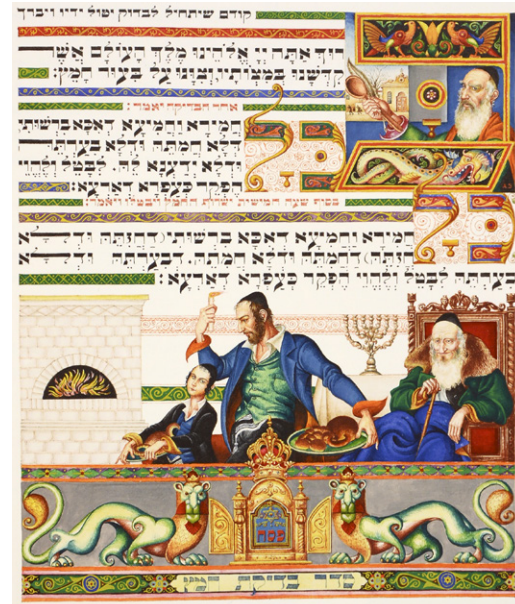 קודם שיתחיל לבדוק יטול ידיו ויברך
בָּרוּךְ אַתָּה יְיָ אֱלֹהֵינוּ מֶלֶךְ הָעוֹלָם אֲשֶׁר
קִדְּשָׁנוּ בְּמִצְוֹתָיו וְצִוָּנוּ עַל בִּעוּר חָמֵץ:
אחר הבדיקה יאמר:
כָּל חֲמִירָא וַחֲמִיעָא דְּאִכָּא בִרְשׁוּתִי
דְּלָא חֲמִתֵּהּ וּדְלָא בִעַרְתֵּהּ
וּדְלָא יְדַעְנָא לֵהּ לִבְטֵל וְלֶהֱוֵי
הֶפְקֵר כְּעַפְרָא דְאַרְעָא:
בסוף שעה חמישית ישרוף החמץ ויבטלו ויאמר:
כָּל חֲמִירָא וַחֲמִיעָא דְּאִכָּא בִרְשׁוּתִי (דַּחֲזִתֵּהּ וּדְלָא
חֲזִתֵּהּ) דַּחֲמִתֵּהּ וּדְלָא חֲמִתֵּהּ דְּבִעַרְתֵּהּ וּדְלָא
בִעַרְתֵּהּ לִבְטֵל וְלֶהֱוֵי הֶפְקֵר כְּעַפְרָא דְאַרְעָא:
פסח